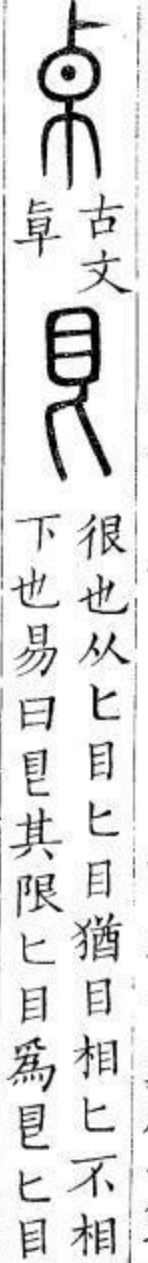 古文
𠦝
很也从匕目匕目猶目相匕不相
下也易曰𥃩其限匕目爲𥃩匕目